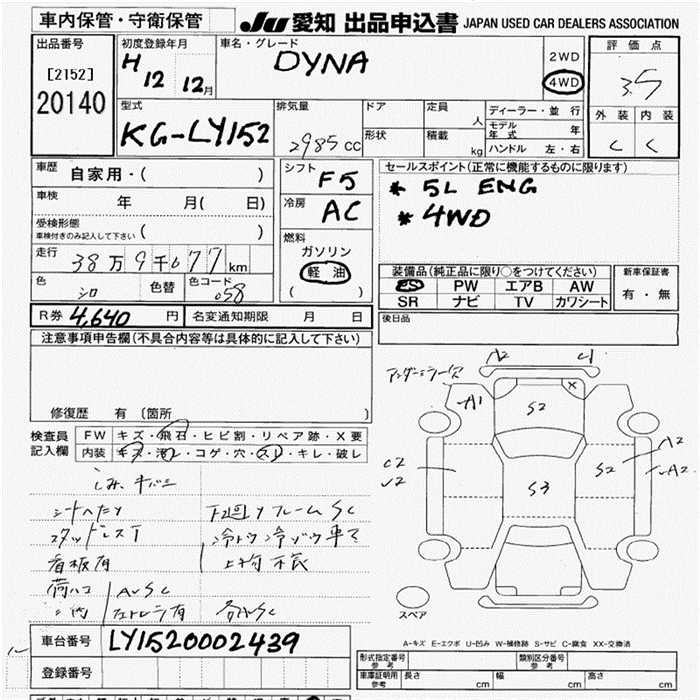 車内保管・守衛保管
JU 愛知 出品申込書 JAPAN USED CAR DEALERS ASSOCIATION
出品番号
[2152]
20140
初度登録年月
H 12 12月
車名・グレード
DYNA
2WD
4WD
評価点
3.5
外装 内装
C C
型式
KG-LY152
排気量
2985 CC
ドア
形状
定員 人
積載 kg
ディーラー・並行
モデル年式 年
ハンドル 左・右
車歴 自家用・( )
車検 年 月( 日)
受検形態
車検付きのみ記入して下さい ( )
走行 38万9千677km
色 シロ 色替 色コード 058
シフト F5
冷房 AC
燃料
ガソリン
軽油
( )
セールスポイント(正常に機能するものに限ります)
* 5L ENG
* 4WD
装備品(純正品に限り○をつけてください)
PS PW エアB AW
SR ナビ TV カワシート
新車保証書
有・無
R券 4,640 円 名変通知期限 月 日
後日品
注意事項申告欄(不具合内容等は具体的に記入して下さい)
修復歴 有 〔箇所 〕
検査員記入欄
FW キズ・飛石・ヒビ割・リペア跡・X要
内装 キズ・汚レ・コゲ・穴・スレ・キレ・破レ
シートヘたり
下廻リフレームSC
スタッドレスT
看板有
アンダーミラーノイズ
A2
A1
S2
X
S3
S2
A2
A2
C2
スペア
A-キズ E-エクボ U-凹み W-補修跡 S-サビ C-腐食 XX-交換済
車台番号 LY1520002439
登録番号
形式指定番号 参考
類別区分番号 参考
車庫証明用 参考 長さ cm 幅 cm 高さ cm